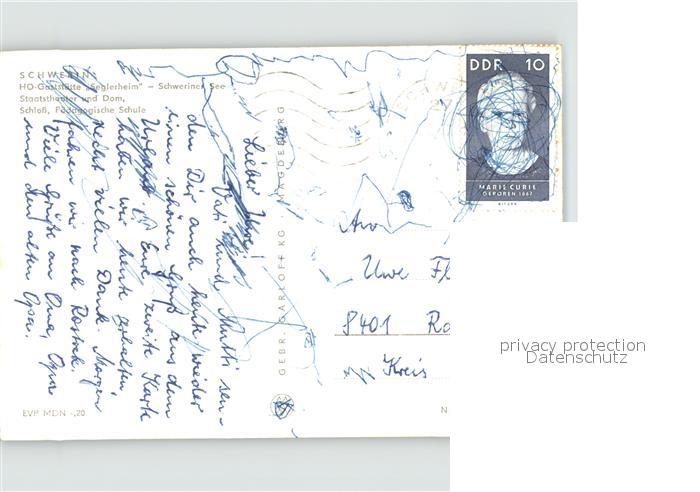 SCHWERIN
HO-Gaststätte „Seglerheim" – Schweriner See
Staatstheater und Dom,
Schloß, Pädagogische Schule
Lieber Uwe!
Vati und Mutti sen-
den Dir auch heute wieder
einen schönen Gruß aus dem
Urlaub. Eure zweite Karte
haben wir heute erhalten
recht vielen Dank. Morgen
fahren wir nach Rostock.
Viele Grüße an Oma, Opa
und den alten Opa.
EVP MDN -,20
GEBR. GARLOFF KG MAGDEBURG
DDR 10
MARIE CURIE
GEBOREN 1867
An
Uwe Fl
8401 Ro
Kreis
N
privacy protection
Datenschutz